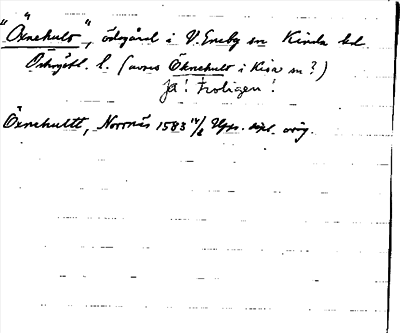 "Öxnehult", ödegård i V. Eneby sn Kinda hd
Östergötl. l. (avses Öknehult i Kisa sn?)
Ja! Troligen!
Öxnehultt, Norrnäs 1583 14/2 Ups. dipl. orig.